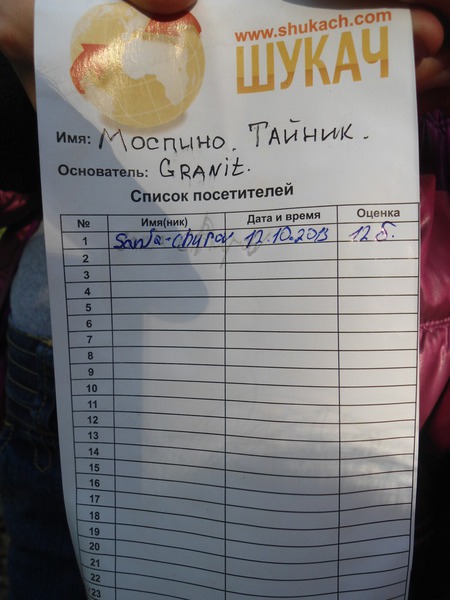 www.shukach.com
ШУКАЧ
Имя: Моспино. Тайник.
Основатель: GRANit.
Список посетителей
№ Имя(ник) Дата и время Оценка
1 12.10.2013 12б.
2
3
4
5
6
7
8
9
10
11
12
13
14
15
16
17
18
19
20
21
22
23